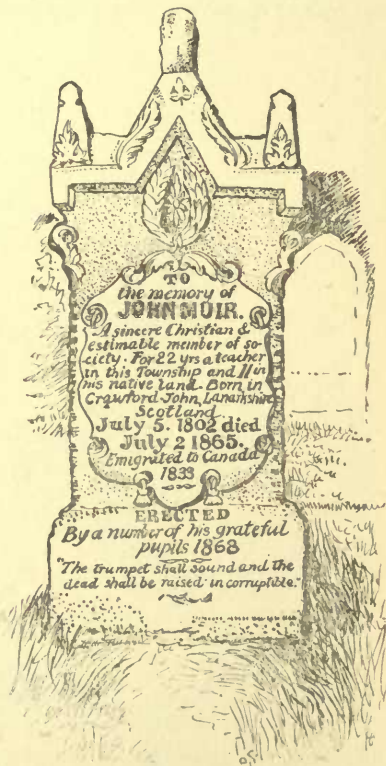 TO
the memory of
JOHN MUIR.
A sincere Christian &
estimable member of so-
ciety. For 22 yrs a teacher
in this Township and 11 in
his native land. Born in
Crawford John, Lanarkshire
Scotland
July 5. 1802 died
July 2 1865.
Emigrated to Canada
1833
ERECTED
By a number of his grateful
pupils 1868
"The trumpet shall sound and the
dead shall be raised incorruptible."